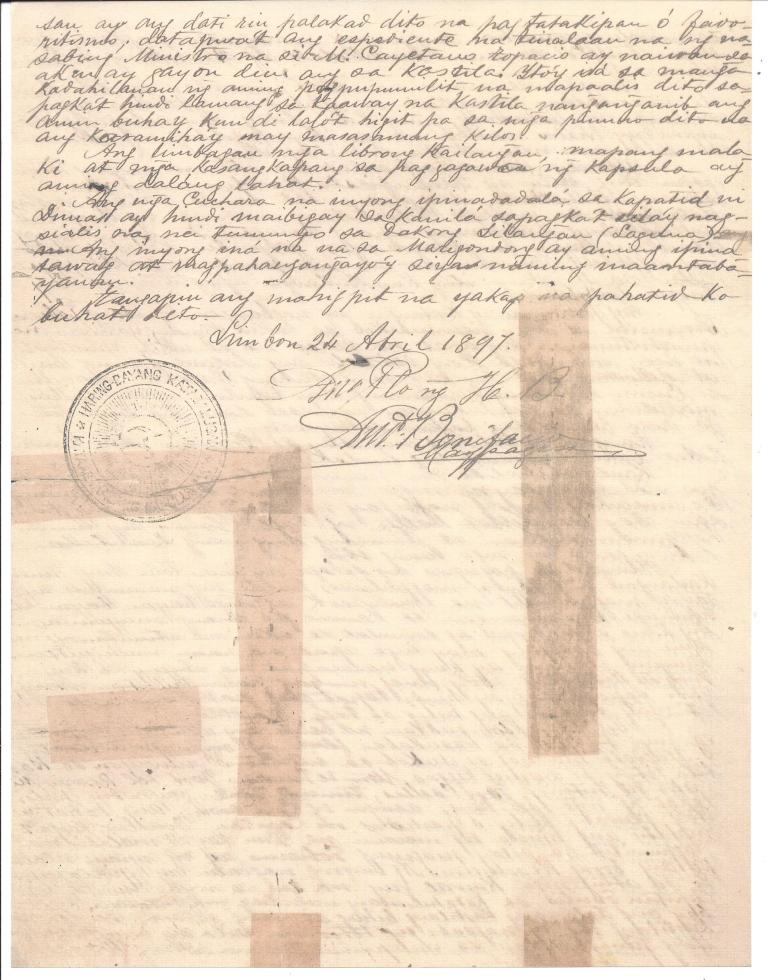 san ay ang dati rin palakad dito na pag tatakipan ó favo-
ritismo, datapwat ang espediente na tinalaan na ng na-
sabing Ministro na si M. Cayetano Topacio ay naiwan sa
akin ay gayon din ang sa Kastila. Itoy isa sa manga
kadahilanan ng aming pagpupumilit na mapaalis dito sa-
pagkát hindi lamang sa kaaway na Kastila nanganganib ang
amin buhay kun di lalót higit pa sa mga pinuno dito na
ang karamiha'y may masasamang kilos.
Ang limbagan mga librong kailangan, mapang mala
ki at mga kasangkapang sa paggagawa ng kapsula ay
aming dalang lahat.
Ang mga Cuchara na inyong ipinadadalá sa kapatid ni
Dimas ay hindi maibigay sa kanilá sapagkat silay nag-
sialis na, nei tumungo sa dakong Silangan (Laguna)
inyong iná na na sa Maligondong ay aming ipina
tawag at
tangapin ang mahigpit na yakap na pahatid ko
buhat dito.
Limbon 24 Abril 1897.
Ang Plo ng H. B.
And. Bonifacio
Maypagasa
HARING-BAYANG KATAGALUGAN